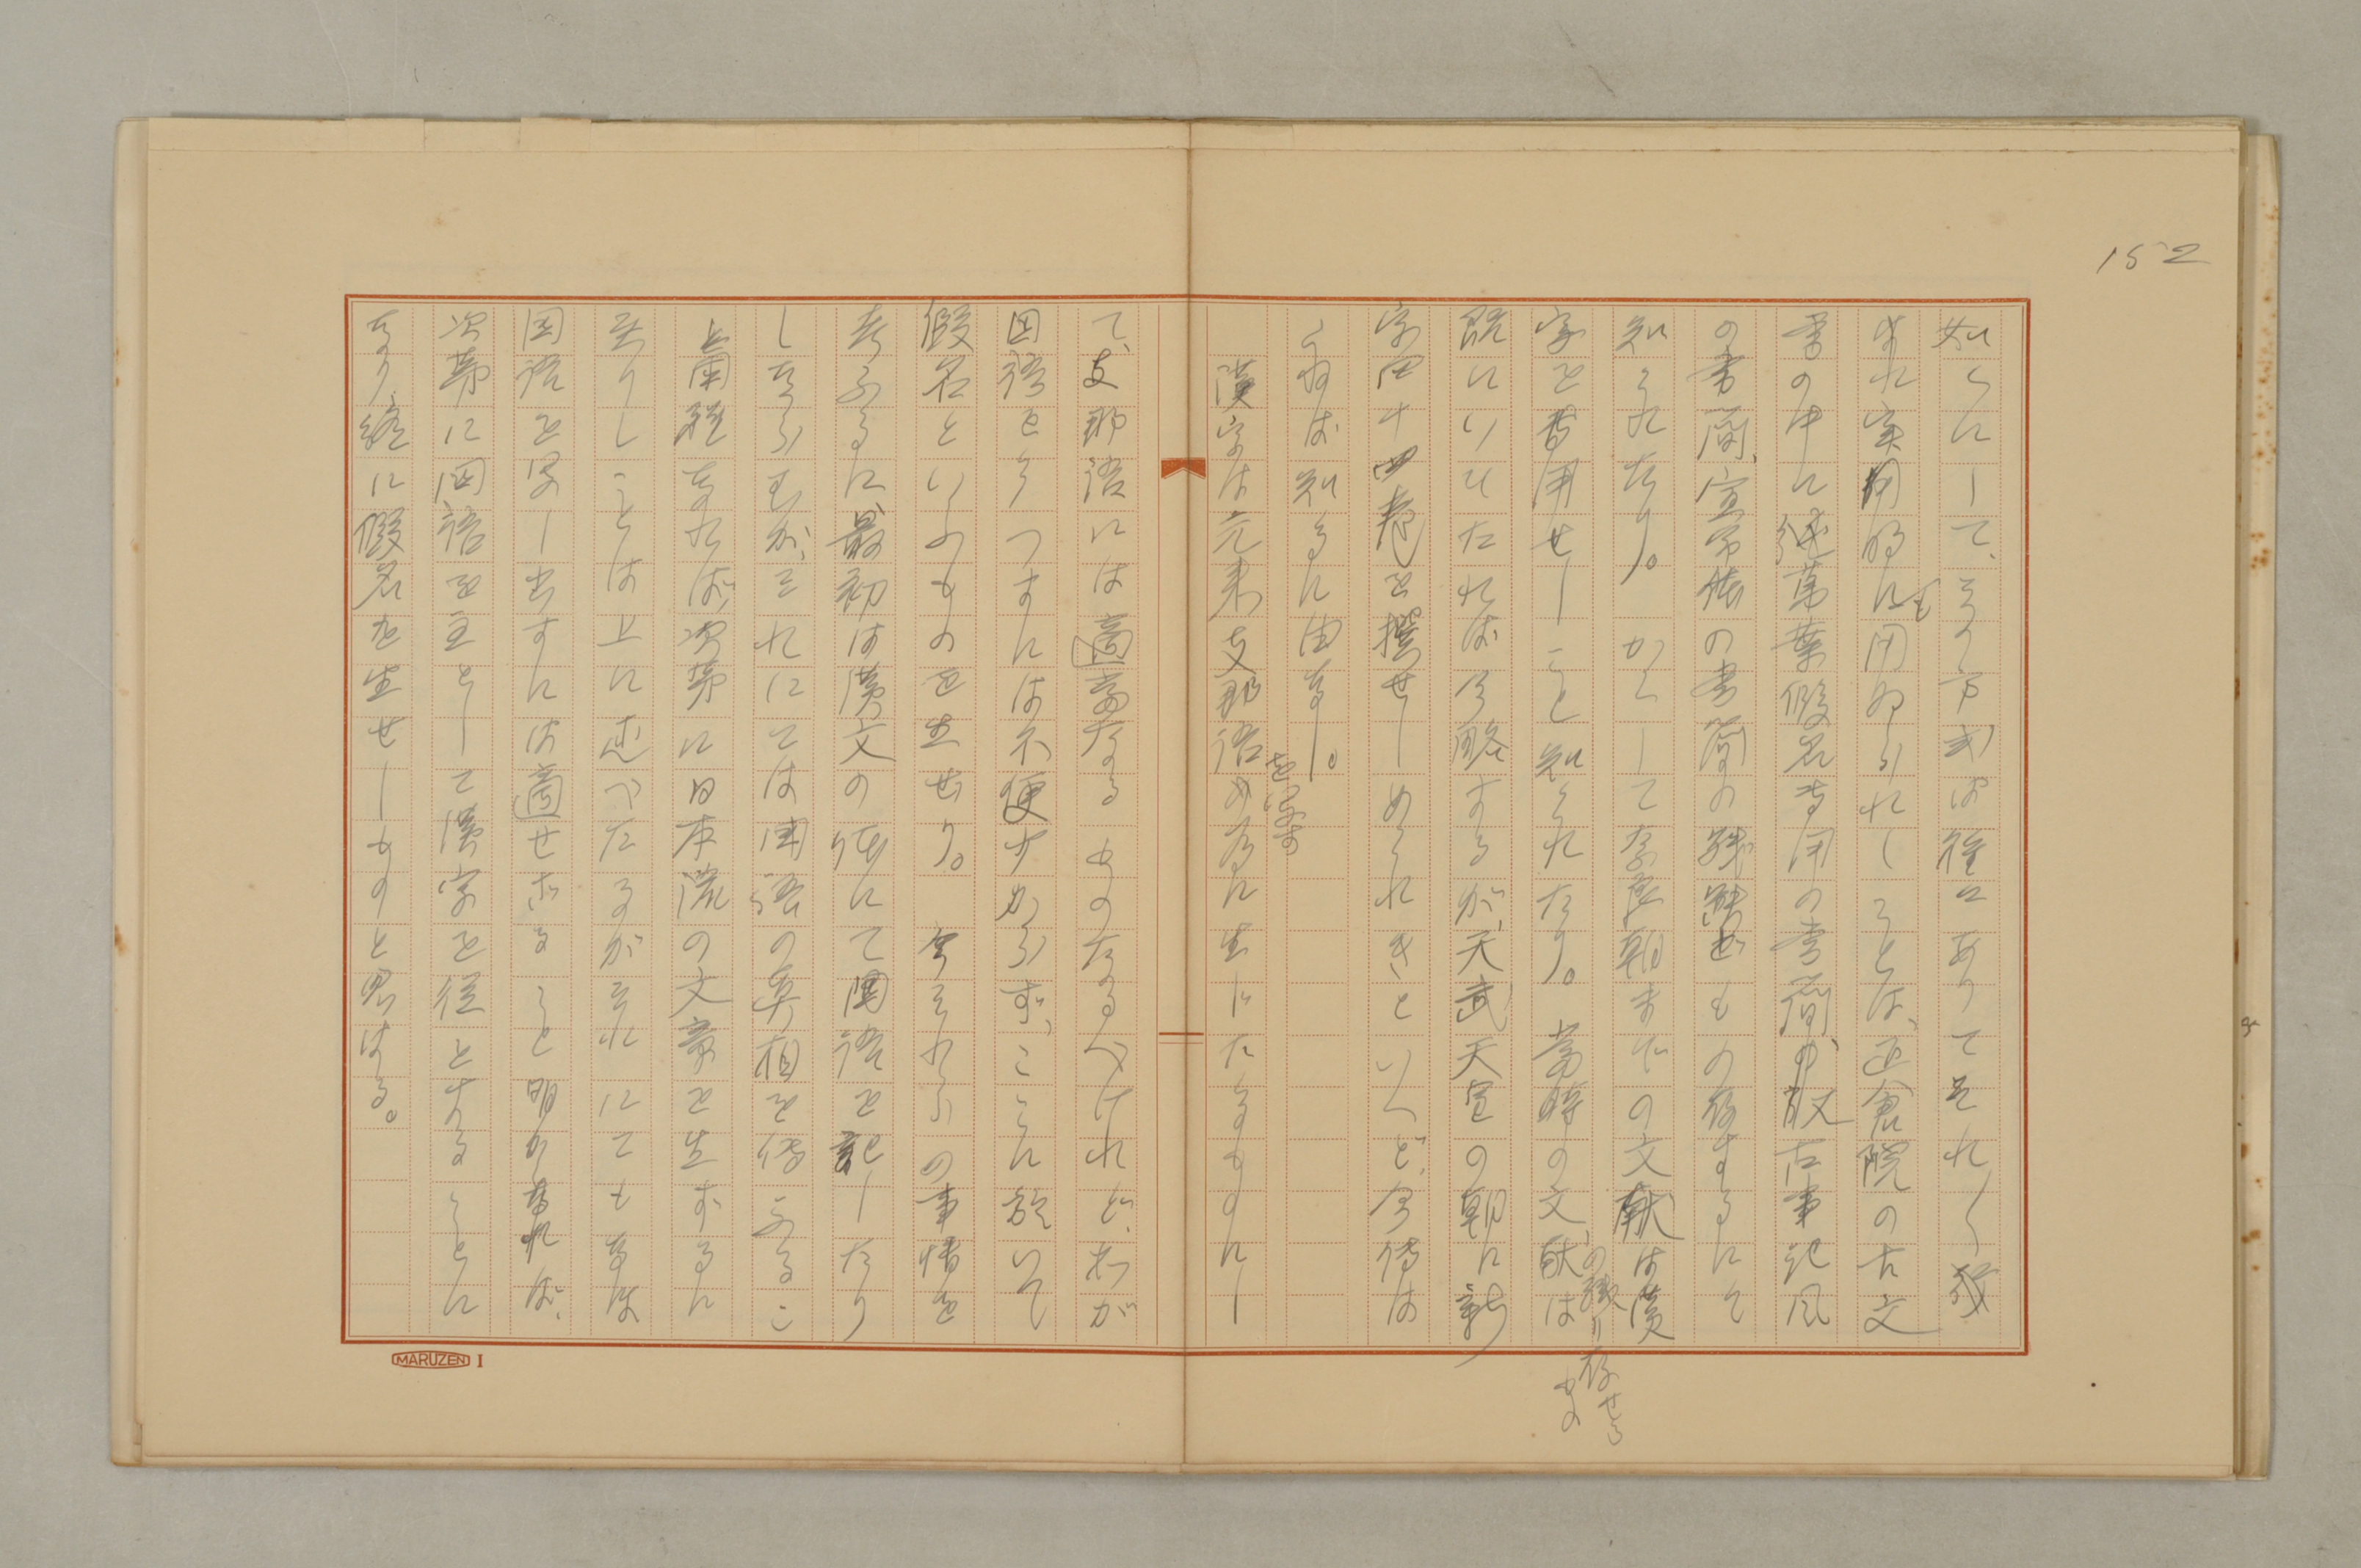 152
如くにして、そのうち或は径にありてそれ〳〵発
まれ実用的にも用ゐられしことは、正倉院の古文
書の中に純萬葉假名専用の書簡、又古事記風
の書簡、宣命体の書簡の残闕どもの存するにて
知られたり。かくして奈良朝までの文献は漢
字を専用せしこと知られたり。當時の文献は
の残り存せるもの
既にいひたれば今略するが、天武天皇の朝に新
字四十四巻を撰せしめられきといへど、今傳は
らねば知るに由なし。
漢字は元来支那語の為に生じたるものにし
を写す
て、支那語には適當なるものなるべけれど、わが
国語をうつすには不便少からず、ここに於いて
假名といふものを生せり。今それらの事情を
考ふるに、最初は漢文の体にて国語を記したり
しならむが、それにては国語の真相を傳ふるこ
と困難なれば、次第に日本流の文章を生ずるに
至りしことは上に述べたるがそれにてもなほ
国語を写し出すには適せざること明かなれば、
次第に国語を主として漢字を従とすることに
なり、終に假名を生せしものと思はる。
MARUZEN I